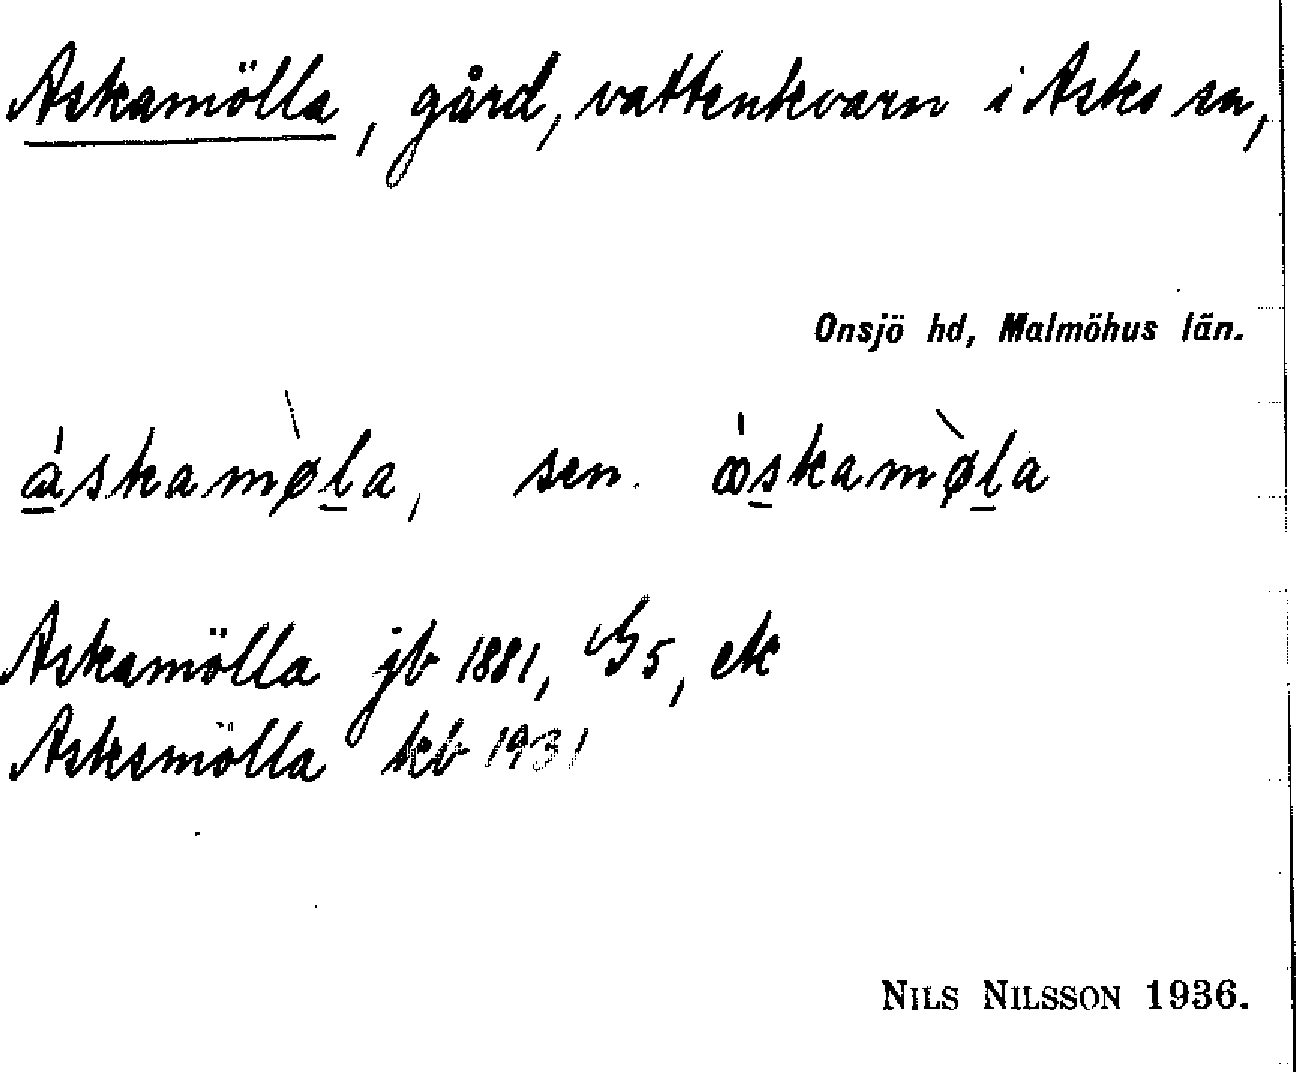 Askamölla, gård, vattenkvarn i Asks sn,
Onsjö hd, Malmöhus län.
áskamø̀la, sen. skamø̀la
Askamölla jb 1881, 5, ek
Asksmölla kb 1931
NILS NILSSON 1936.